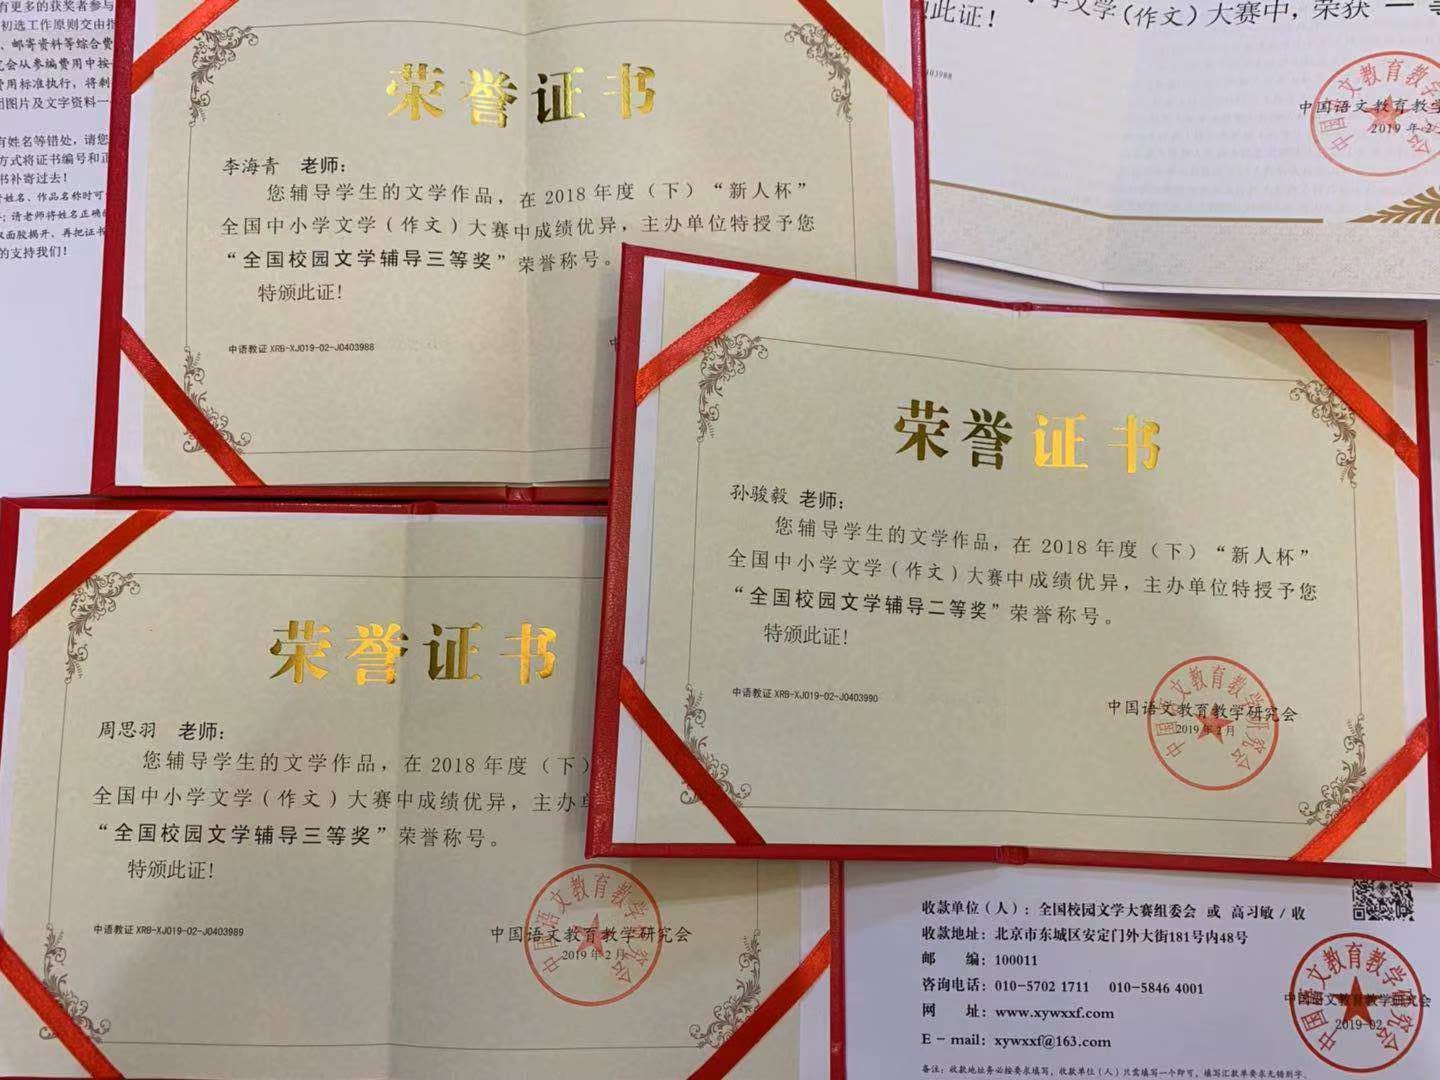 有更多的获奖者参与
初选工作原则交由指
、邮寄资料等综合费
究会从参编费用中按
费用标准执行，将剩
团图片及文字资料一
有姓名等错处，请您
方式将证书编号和正
书补寄过去！
者姓名、作品名称时可
；请老师将姓名正确的
双面胶揭开、再把证书
的支持我们！
荣誉证书
李海青 老师：
您辅导学生的文学作品，在 2018 年度（下）“新人杯”
全国中小学文学（作文）大赛中成绩优异，主办单位特授予您
“全国校园文学辅导三等奖”荣誉称号。
特颁此证！
中语教证 XRB-XJ019-02-J0403988
文学（作文）大赛中，荣获 一 等
此证！
03988
中国语文教育教学
2019 年 2
中国语文教育教
会
荣誉证书
孙骏毅 老师：
您辅导学生的文学作品，在 2018 年度（下）“新人杯”
全国中小学文学（作文）大赛中成绩优异，主办单位特授予您
“全国校园文学辅导二等奖”荣誉称号。
特颁此证！
中语教证 XRB-XJ019-02-J0403990
中国语文教育教学研究会
2019 年 2 月
中国语文教育教学研究会
荣誉证书
周思羽 老师：
您辅导学生的文学作品，在 2018 年度（下）
全国中小学文学（作文）大赛中成绩优异，主办单
“全国校园文学辅导三等奖”荣誉称号。
特颁此证！
中语教证 XRB-XJ019-02-J0403989
中国语文教育教学研究会
2019 年 2 月
中国语文教育教学研究会
收款单位（人）：全国校园文学大赛组委会 或 高习敏 / 收
收款地址：北京市东城区安定门外大街181号内48号
邮 编：100011
咨询电话：010-5702 1711 010-5846 4001
网 址：www.xywxxf.com
E - mail：xywxxf@163.com
备注：收款地址务必按要求填写，收款单位（人）只需填写一个即可，填写汇款单要求无错别字。
中国语文教育教学研究会
2019-02
中国语文教育教学研究会